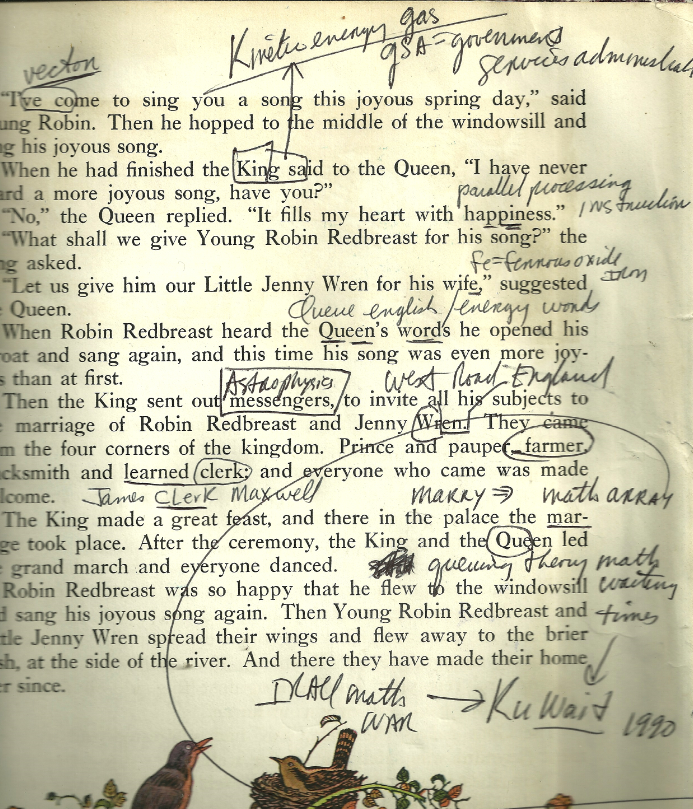 Kinetic energy gas
GSA = government
services administration
vector
"I've come to sing you a song this joyous spring day," said
ung Robin. Then he hopped to the middle of the windowsill and
g his joyous song.
When he had finished the King said to the Queen, "I have never
ard a more joyous song, have you?"
parallel processing
"No," the Queen replied. "It fills my heart with happiness."
instruction
"What shall we give Young Robin Redbreast for his song?" the
ng asked.
fe = ferrous oxide
Iron
"Let us give him our Little Jenny Wren for his wife," suggested
Queen.
Queue english / energy words
When Robin Redbreast heard the Queen's words he opened his
oat and sang again, and this time his song was even more joy-
s than at first.
Astrophysics
West Road England
Then the King sent out messengers, to invite all his subjects to
marriage of Robin Redbreast and Jenny Wren. They came
m the four corners of the kingdom. Prince and pauper, farmer,
cksmith and learned clerk; and everyone who came was made
lcome.
James Clerk Maxwell
marry ⇒ math array
The King made a great feast, and there in the palace the mar-
ge took place. After the ceremony, the King and the Queen led
grand march and everyone danced.
queuing theory math
waiting
times
Robin Redbreast was so happy that he flew to the windowsill
d sang his joyous song again. Then Young Robin Redbreast and
tle Jenny Wren spread their wings and flew away to the brier
sh, at the side of the river. And there they have made their home
er since.
math → KuWait 1990
WAR